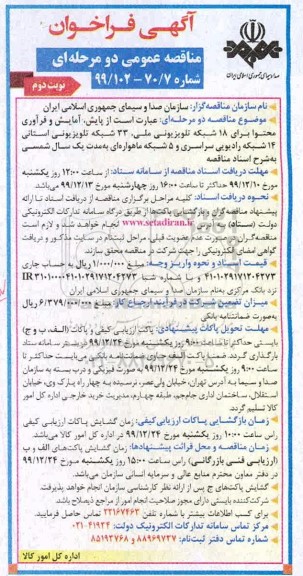 آگهی فراخوان
مناقصه عمومی دو مرحله‌ای
شماره ۷۰/۷-۹۹/۱۰۲
صدا و سیمای جمهوری اسلامی ایران
نوبت دوم
نام سازمان مناقصه‌گزار: سازمان صدا و سیمای جمهوری اسلامی ایران
موضوع مناقصه دو مرحله‌ای: عبارت است از پایش، آمایش و فرآوری
محتوا برای ۱۸ شبکه تلویزیونی ملی، ۳۳ شبکه تلویزیونی استانی
۱۴ شبکه رادیویی سراسری و ۵ شبکه ماهواره‌ای به‌مدت یک سال شمسی
به‌شرح اسناد مناقصه
مهلت دریافت اسناد مناقصه از سامانه ستاد: از ساعت ۱۲:۰۰ روز یکشنبه
مورخ ۹۹/۱۲/۱۰ حداکثر تا ساعت ۱۶:۰۰ روز چهارشنبه مورخ ۹۹/۱۲/۱۳ می‌باشد.
نحوه دریافت اسناد: کلیه مراحل برگزاری مناقصه از دریافت اسناد تا ارائه
پیشنهاد مناقصه‌گران و بازگشایی پاکت‌ها از طریق درگاه سامانه تدارکات الکترونیکی
دولت (ستاد) به آدرس www.setadiran.ir انجام خواهد شد و لازم است
مناقصه‌گران در صورت عدم عضویت قبلی، مراحل ثبت‌نام در سایت مذکور و دریافت
گواهی امضای الکترونیکی را جهت شرکت در مناقصه محقق سازند.
قیمت اسناد و نحوه واریز وجه: مبلغ ۱/۰۰۰/۰۰۰ ریال به حساب جاری
نزد بانک مرکزی به‌نام سازمان صدا و سیمای جمهوری اسلامی ایران
میزان تضمین شرکت در فرآیند ارجاع کار: مبلغ ۶/۳۷۹/۰۰۰/۰۰۰ ریال
به‌صورت ضمانتنامه بانکی
مهلت تحویل پاکات پیشنهادی: پاکت ارزیابی کیفی و پاکات (الف، ب و ج)
بایستی حداکثر تا ساعت ۹:۰۰ روز یکشنبه مورخ ۹۹/۱۲/۲۴ در بستر سامانه ستاد
بارگذاری گردد. ضمناً پاکت الف حاوی ضمانتنامه بانکی می‌بایست حداکثر تا
ساعت ۹:۰۰ روز یکشنبه مورخ ۹۹/۱۲/۲۴ به صورت فیزیکی و درب بسته به سازمان
صدا و سیما به آدرس تهران، خیابان ولی‌عصر، نرسیده به چهار راه پارک وی، خیابان
استقلال، ساختمان اداری جام‌جم، طبقه چهارم، مدیریت خرید خارجی اداره کل امور
کالا تسلیم گردد.
زمان بازگشایی پاکات ارزیابی کیفی: زمان گشایش پاکات ارزیابی کیفی
راس ساعت ۱۰:۰۰ روز یکشنبه مورخ ۹۹/۱۲/۲۴ در اداره کل امور کالا می‌باشد.
زمان مناقصه و محل قرائت پیشنهادها: زمان گشایش پاکت‌های الف و ب
(ارزیابی فنی بازرگانی) راس ساعت ۱۵:۰۰ روز یکشنبه مورخ ۹۹/۱۲/۲۴
در دفتر معاون محترم منابع مالی و سرمایه انسانی سازمان می‌باشد.
گشایش پاکت‌های ج پس از ارائه نظر کارشناسی سازمان انجام خواهد پذیرفت.
شرکت‌کننده بایستی دارای مجوز صلاحیت انجام امور از مراجع ذیصلاح باشد
برای کسب اطلاعات بیشتر با شماره تلفن ۲۲۱۶۷۴۶۳ تماس حاصل فرمایید.
مرکز تماس سامانه تدارکات الکترونیک دولت: ۴۱۹۳۴-۰۲۱
شماره تماس دفتر ثبت‌نام: ۸۸۹۶۹۷۳۷ و ۸۵۱۹۳۷۶۸
اداره کل امور کالا